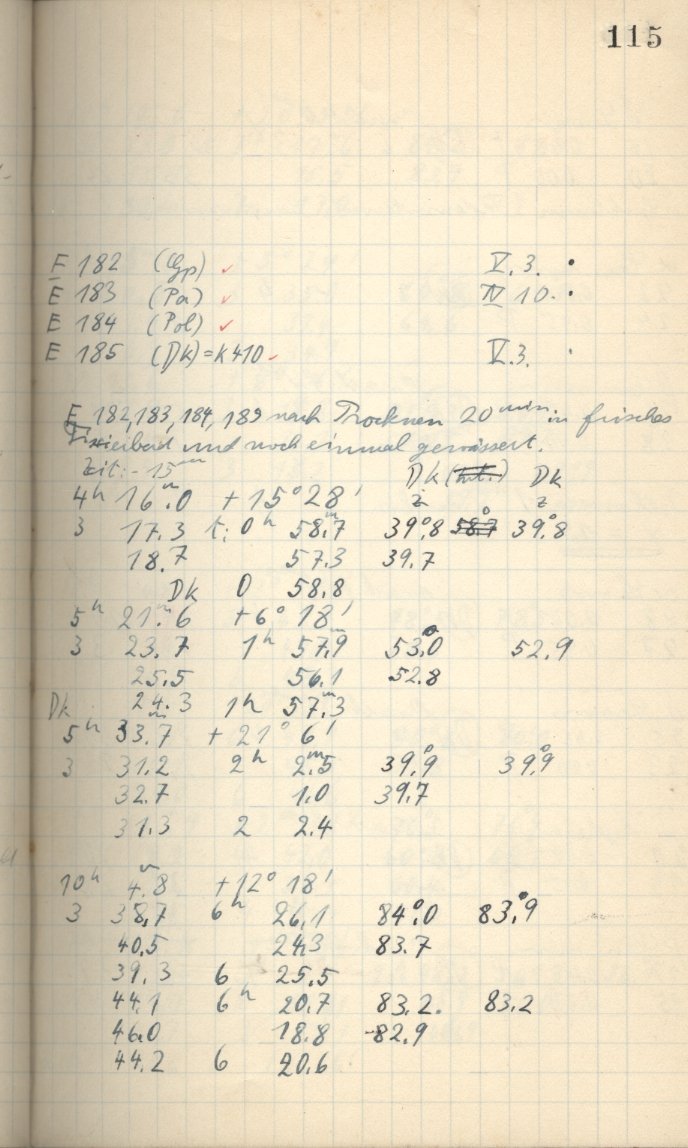 115
E 182 (Gp) ✓ V. 3. •
E 183 (Pa) ✓ IV 10. •
E 184 (Pol) ✓
E 185 (Dk) = K 410 ✓ V. 3. ·
E 182, 183, 184, 189 nach Trocknen 20 min in frisches
Fixierbad und noch einmal gewässert.
Zeit: - 15 m
Dk Dk
4h 16m.0 + 15° 28' z z
3 17.3 t: 0h 58m.7 39°.8 39°.8
18.7 57.3 39.7
Dk 0 58.8
5h 21m.6 + 6° 18'
3 23.7 1h 57m.9 53°.0 52.9
25.5 56.1 52.8
Dk 24.3 1h 57m.3
5h 33m.7 + 21° 6'
3 31.2 2h 2m.5 39°.9 39°.9
32.7 1.0 39.7
31.3 2 2.4
10h 4m.8 + 12° 18'
3 38.7 6h 26.1 84°.0 83°.9
40.5 24.3 83.7
39.3 6 25.5
44.1 6h 20.7 83.2. 83.2
46.0 18.8 82.9
44.2 6 20.6